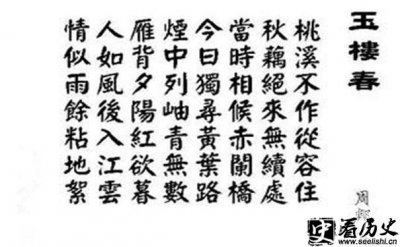 玉樓春
桃溪不作從容住
秋藕絕來無續處
當時相候赤闌橋
今日獨尋黃葉路
煙中列岫青無數
雁背夕陽紅欲暮
人如風後入江雲
情似雨餘粘地絮
周
看历史
www.seelishi.cn